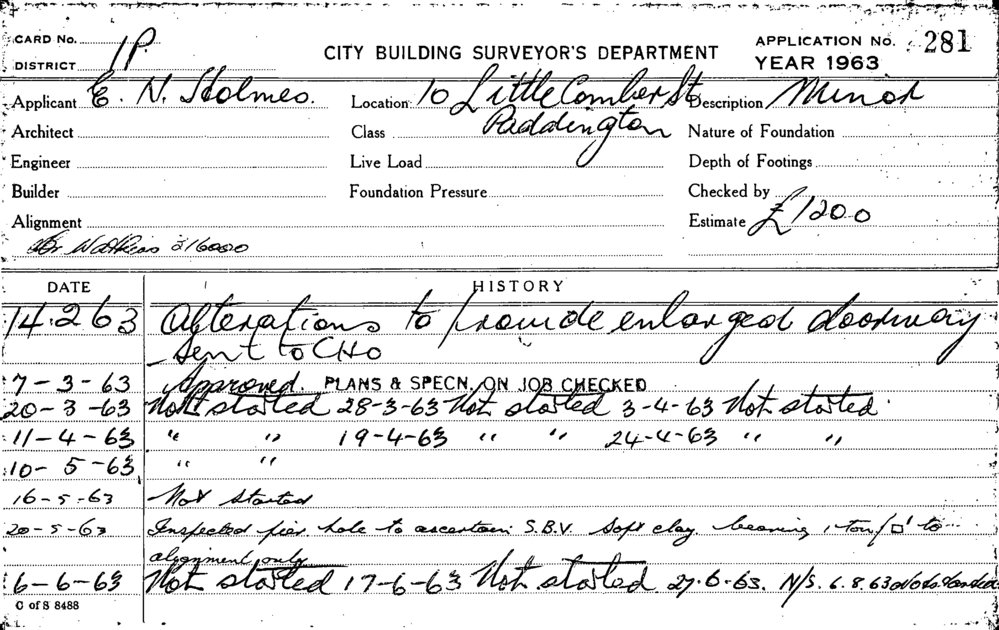 CARD No. 1P.
DISTRICT
CITY BUILDING SURVEYOR'S DEPARTMENT
APPLICATION No. 281
YEAR 1963
Applicant E. N. Holmes.
Location 10 Little Comber St
Paddington
Description Minor
Architect
Class
Nature of Foundation
Engineer
Live Load
Depth of Footings
Builder
Foundation Pressure
Checked by
Alignment
Estimate £1200
316000
DATE HISTORY
14.2.63 Alterations to provide enlarged doorway
Sent to CHO
7-3-63 Approved. PLANS & SPECN. ON JOB CHECKED
20-3-63 Not started 28-3-63 Not started 3-4-63 Not started
11-4-63 " " 19-4-63 " " 24-4-63 " "
10-5-63 " "
16-5-63 Not started
20-5-63 Inspected pier hole to ascertain S.B.V. Soft clay bearing 1 ton/□' to
alignment only
6-6-63 Not started 17-6-63 Not started. 27.6.63. N/S. 6.8.63 Not started
C of S 8488